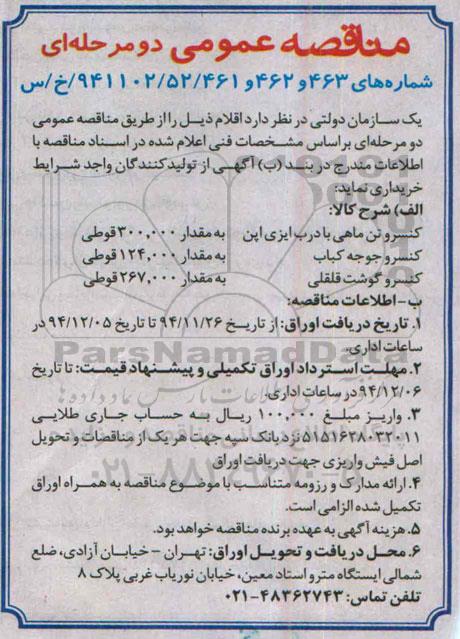 مناقصه عمومی دو مرحله‌ای
شماره‌های ۴۶۳ و ۴۶۲ و ۹۴۱۱۰۲/۵۲/۴۶۱/خ/س
یک سازمان دولتی در نظر دارد اقلام ذیل را از طریق مناقصه عمومی
دو مرحله‌ای بر اساس مشخصات فنی اعلام شده در اسناد مناقصه با
اطلاعات مندرج در بند (ب) آگهی از تولیدکنندگان واجد شرایط
خریداری نماید:
الف) شرح کالا:
کنسرو تن ماهی با درب ایزی اپن به مقدار ۳۰۰,۰۰۰ قوطی
کنسرو جوجه کباب به مقدار ۱۲۴,۰۰۰ قوطی
کنسرو گوشت قلقلی به مقدار ۲۶۷,۰۰۰ قوطی
ب- اطلاعات مناقصه:
۱. تاریخ دریافت اوراق: از تاریخ ۹۴/۱۱/۲۶ تا تاریخ ۹۴/۱۲/۰۵ در
ساعات اداری.
۲. مهلت استرداد اوراق تکمیلی و پیشنهاد قیمت: تا تاریخ
۹۴/۱۲/۰۶ در ساعات اداری.
۳. واریز مبلغ ۱۰۰,۰۰۰ ریال به حساب جاری طلایی
۵۱۵۱۶۲۸۰۳۲۰۱۱ نزد بانک سپه جهت هر یک از مناقصات و تحویل
اصل فیش واریزی جهت دریافت اوراق
۴. ارائه مدارک و رزومه متناسب با موضوع مناقصه به همراه اوراق
تکمیل شده الزامی است.
۵. هزینه آگهی به عهده برنده مناقصه خواهد بود.
۶. محل دریافت و تحویل اوراق: تهران - خیابان آزادی، ضلع
شمالی ایستگاه مترو استاد معین، خیابان نوریاب غربی پلاک ۸
تلفن تماس: ۴۸۳۶۲۷۴۳-۰۲۱
ParsNamadData